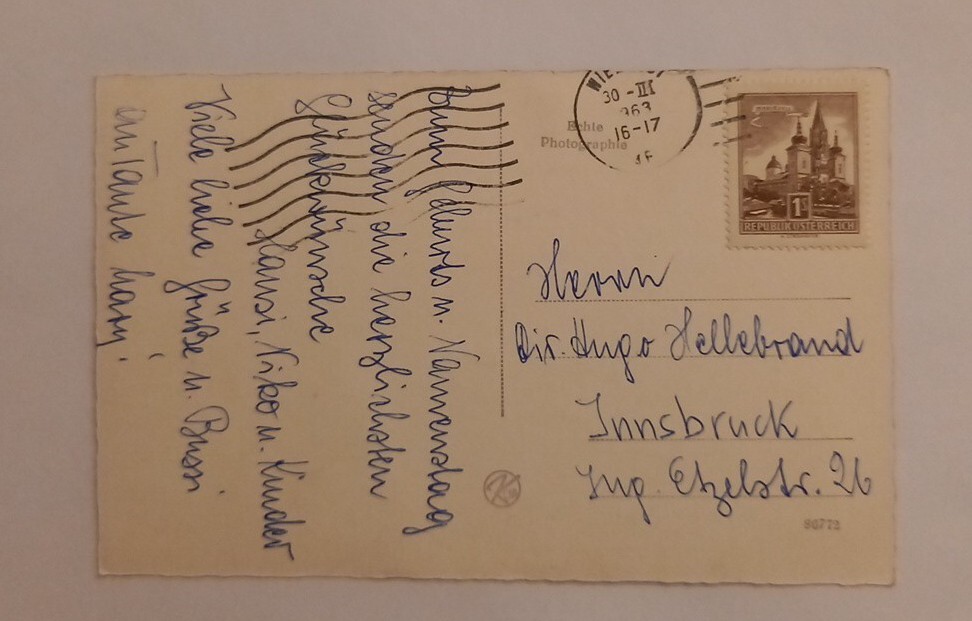 Zum Geburts u. Namenstag
senden die herzlichsten
Glückwünsche
Hansi, Niko u. Kinder
Viele liebe Grüße u. Bussi
an Tante Mary.
Echte
Photographie
WIEN
30-III
963
16-17
1S
REPUBLIK ÖSTERREICH
Herrn
Dir. Hugo Hellebrand
Innsbruck
Ing. Etzelstr. 26
96773